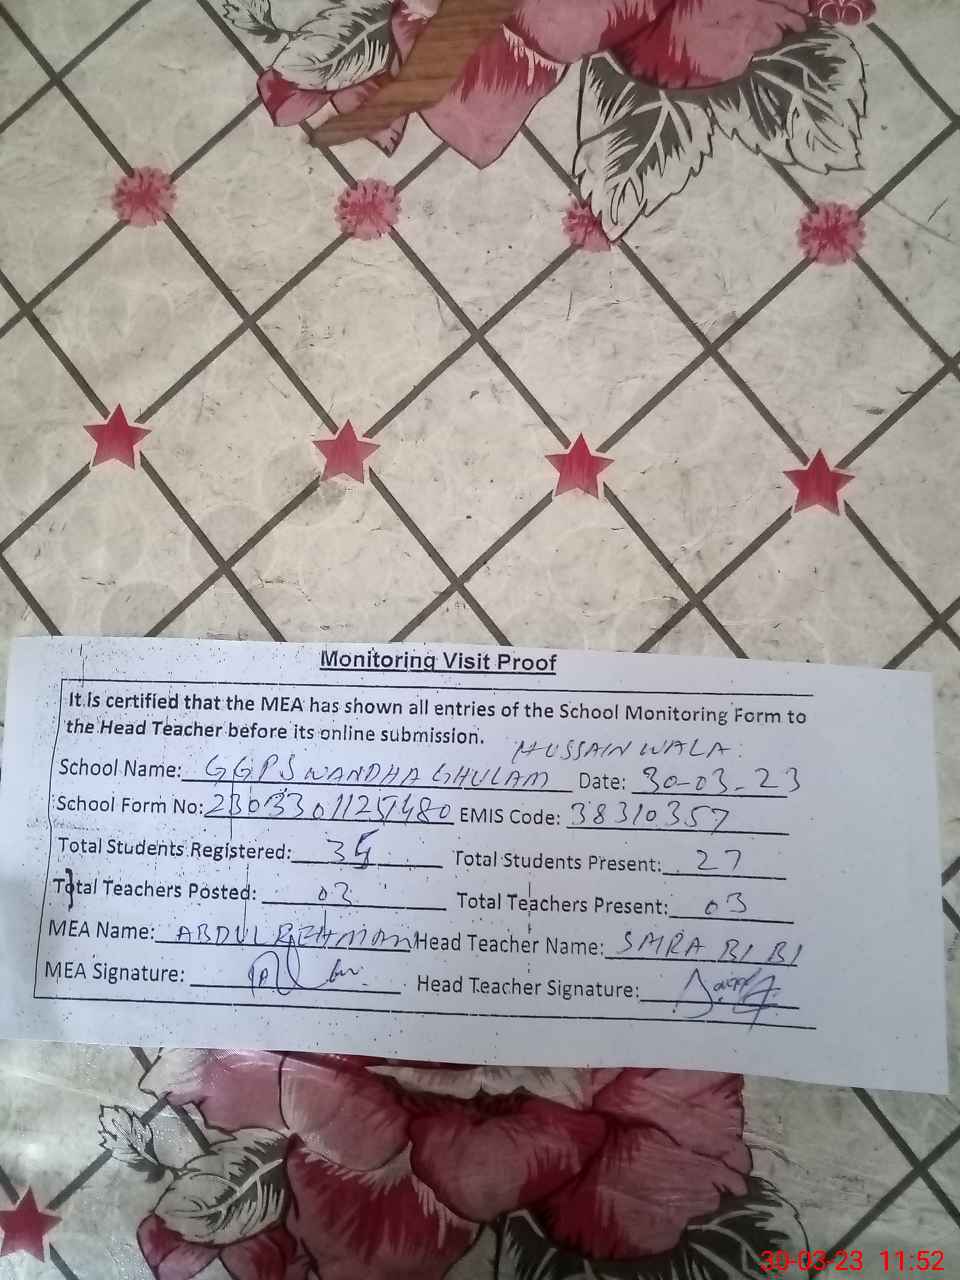 Monitoring Visit Proof
It is certified that the MEA has shown all entries of the School Monitoring Form to
the Head Teacher before its online submission.
HUSSAIN WALA.
School Name: GGPS WANDHA GHULAM Date: 30-03-23
School Form No: EMIS Code: 38310357
Total Students Registered: Total Students Present: 27
Total Teachers Posted: 03 Total Teachers Present: 03
MEA Name: ABDUL REHMAN Head Teacher Name: SMRA BI BI
MEA Signature: Head Teacher Signature:
30-03-23 11:52